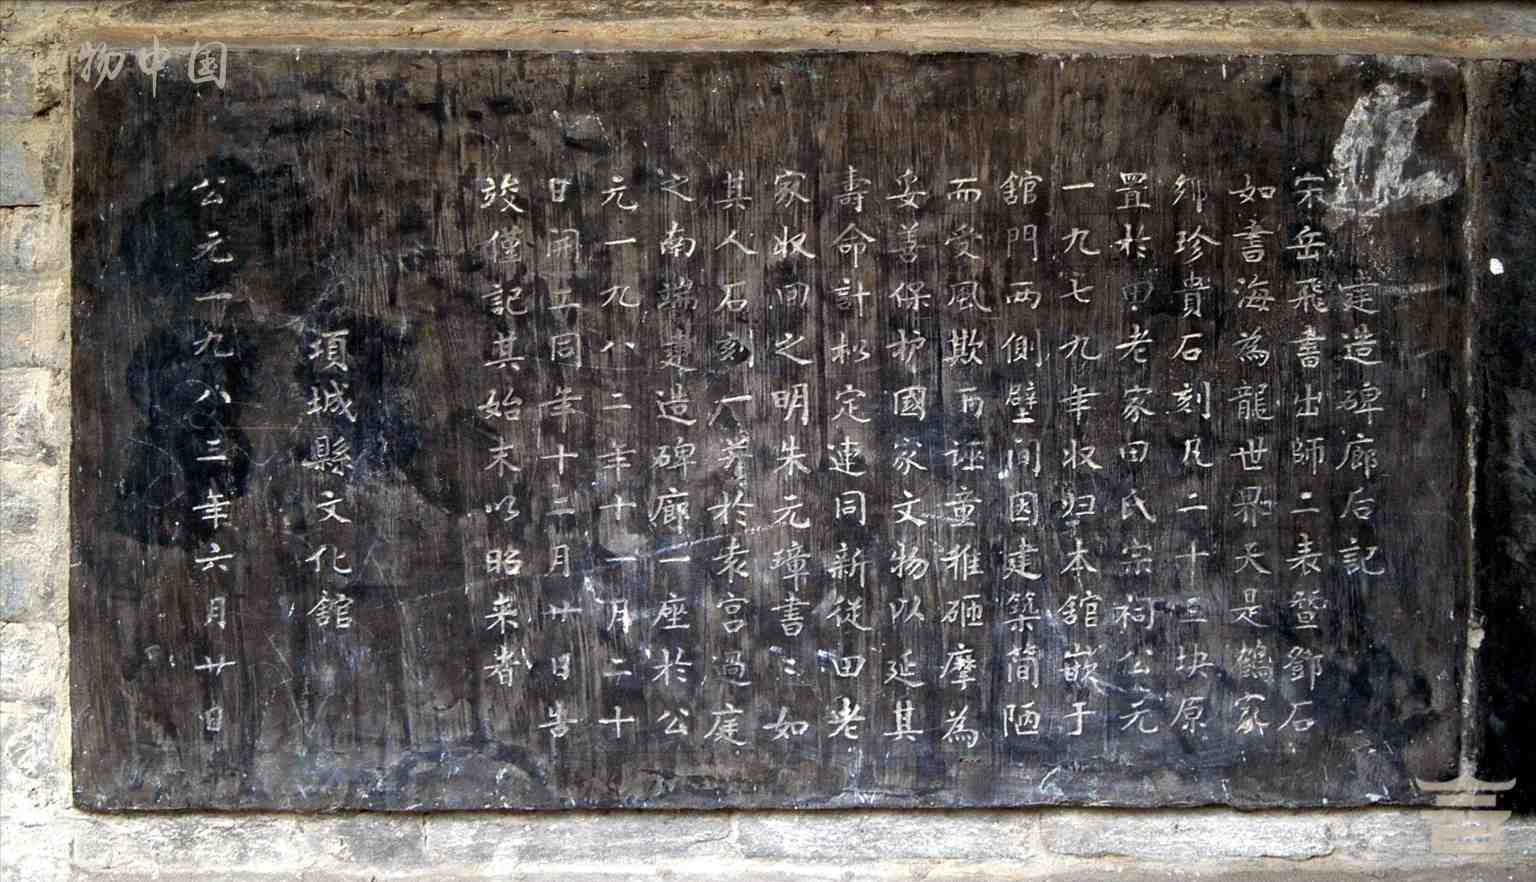 建造碑廊后記
宋岳飛書出師二表暨鄧石
如書海為龍世界天是鶴家
鄉珍貴石刻凡二十三块原
置於田老家田氏宗祠公元
一九七九年收归本舘嵌于
舘門两側壁间因建築简陋
而受風欺雨诬童稚砸摩為
妥善保护國家文物以延其
壽命計松定連同新從田老
家收回之明朱元璋書:如
其人石刻一并於袁宫過庭
之南端建造碑廊一座於公
元一九八二年十一月二十
日開工同年十二月廿日告
竣僅記其始末以昭来者
項城縣文化舘
公元一九八三年六月廿日
物中国